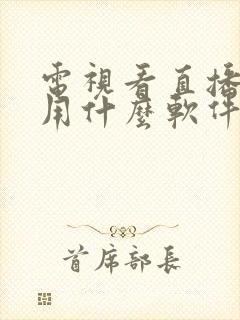 電視看直播
用什麼軟件
首席部長